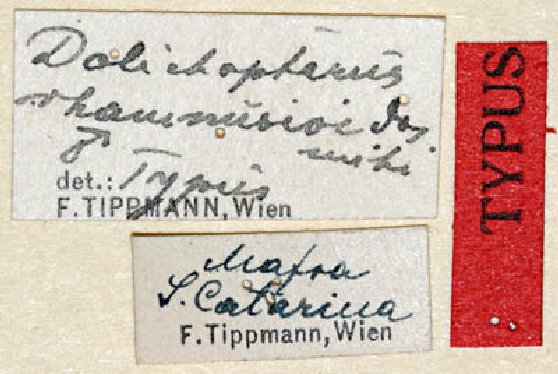 Dolichopterus
rhamnusioides
♂ mihi
det.: Typus
F. TIPPMANN, Wien
Mafra
S. Catarina
F. Tippmann, Wien
TYPUS